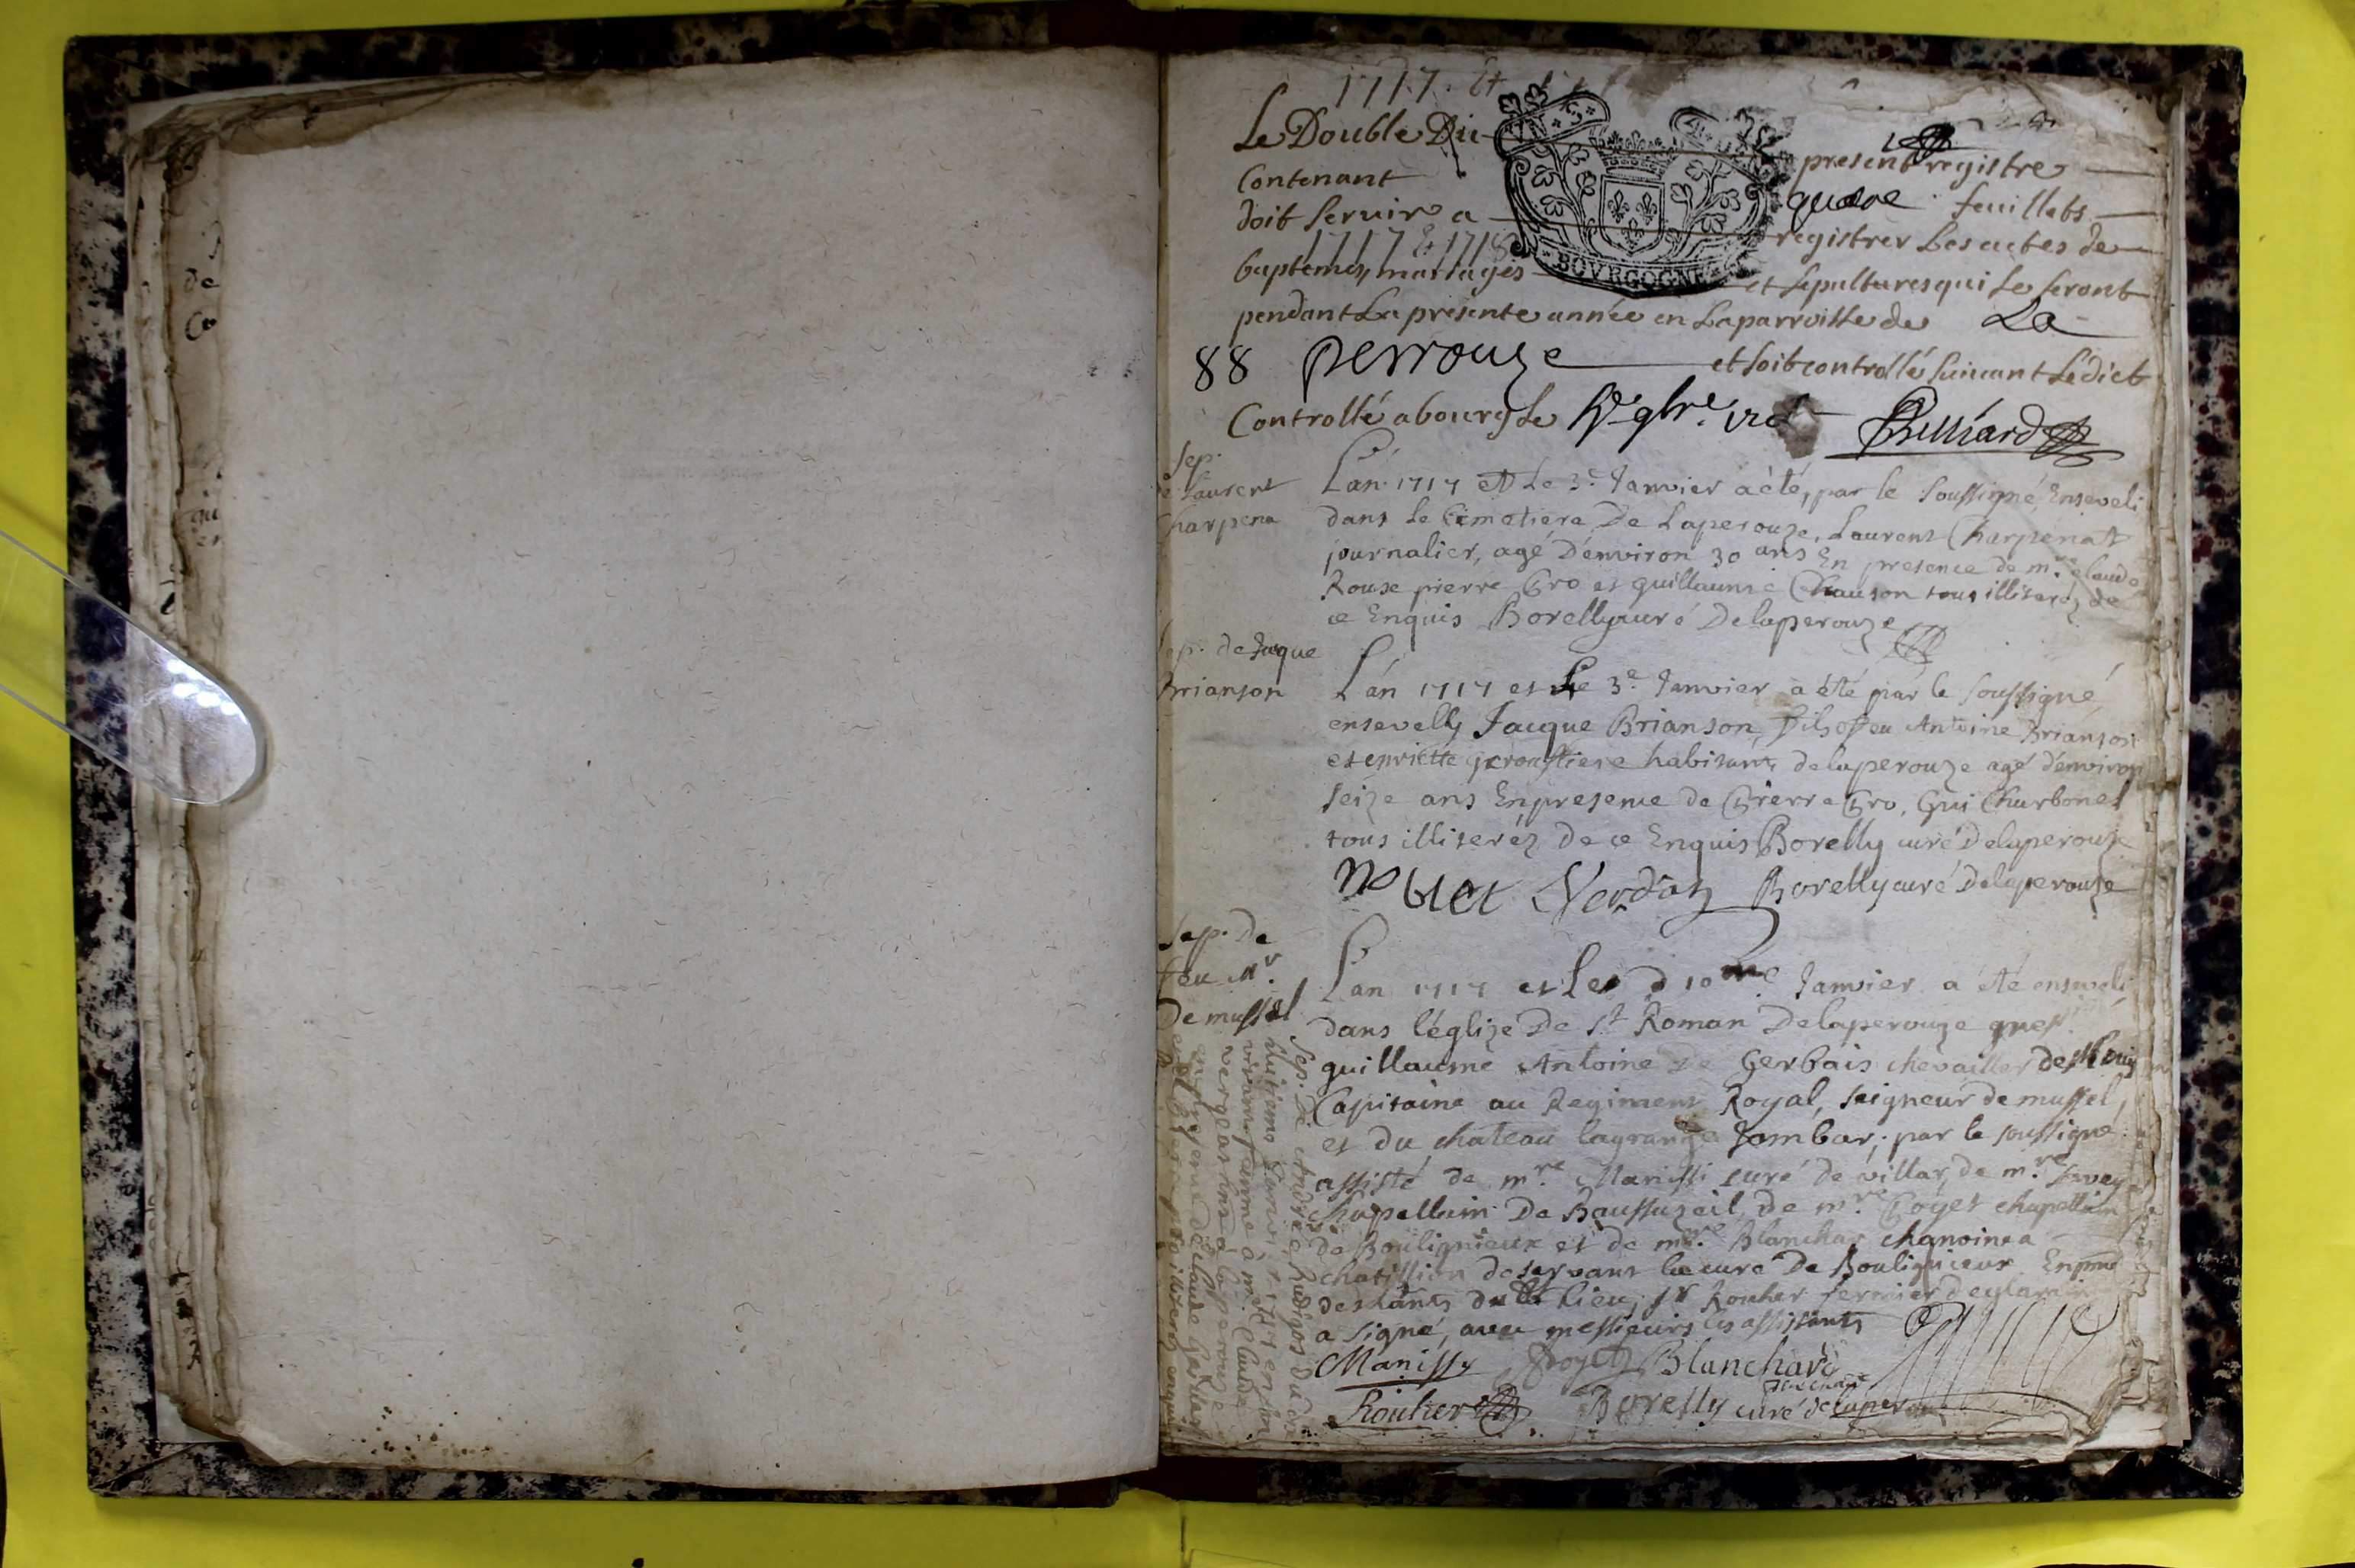 1717 et
Le Double Du present registre
Contenant quatre feuillets
doit servir a registrer Les actes de
1717 & 1718
baptemes, mariages et sepultures qui se feront
pendant La presente année en La parroisse de La
88 perrouze et soit controllé suivant Lédict
Controllé a bourg Le 9bre
Billiard
Sep.
Laurent
Charpena
L'an 1717 et Le 3e Janvier a èté, par le soussigné, Enseveli
dans Le Cimetiere De Laperouze, Laurent Charpenat
journalier, agé D'environ 30 ans En presence de mre claude
Rouse pierre Gro et guillaume Chauson tous illiterez de
ce Enquis Borelly curé Delaperouze
sep. de Jaque
Brianson
L'an 1717 et Le 3e Janvier a èté par le soussigné
ensevelly Jacque Brianson, fils feu Antoine Brianson
et enriette habitants delaperouze agé d'environ
seize ans En presence de Pierre Gro, Gui Charbonet
tous illiterez de ce Enquis Borelly curé Delaperouze
Borelly curé Delaperouze
sep. De
feu Mr
De mussel
L'an 1717 et Le 10me Janvier a été enseveli
dans l'églize De st Roman Delaperouze
guillaume Antoine De Gerbais chevallier de
Capitaine au Regiment Royal, seigneur de mussel,
et du chateau lagrange Jambar, par le soussigné
assisté de mre Manissi curé de villar, de mre
chapellain De de mre Goyet chapellain
de Boulignieux et de mre Blanchar chanoine a
chatillion deservant la cure De Boulignieux
des habitants dudit Lieu; sr Rouher fermier
a signé, avec messieurs les assistants
Manissy Goyet Blanchard
Rouher Borelly curé delaperouze
Sep. De Andrée
Janvier 1717
vivant femme a mre Claude
a laperouze
en presence de Claude
illiterez enquis